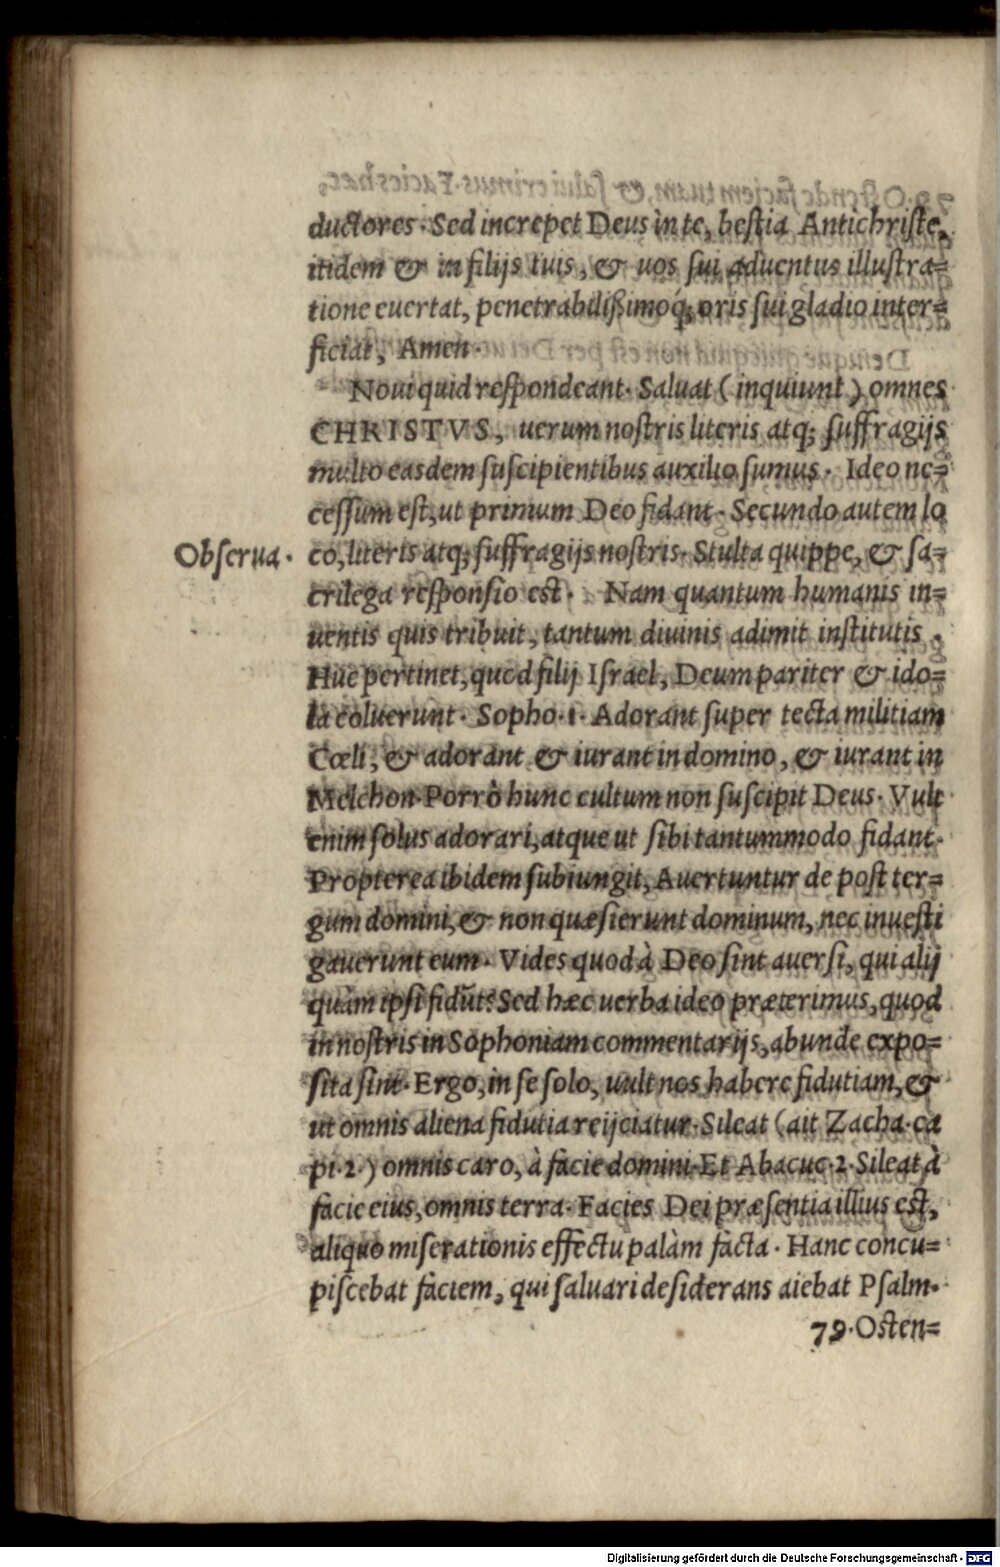 ductores. Sed increpet Deus in te, bestia Antichriste,
itidem & in filijs tuis, & uos sui aduentus illustra=
tione euertat, penetrabilißimoq́; oris sui gladio inter=
ficiat, Amen.
Noui quid respondeant. Saluat (inquiunt) omnes
CHRISTVS, uerum nostris literis atq; suffragijs
multo easdem suscipientibus auxilio sumus. Ideo ne=
cessum est, ut primum Deo fidant. Secundo autem lo
Obserua.
co, literis atq; suffragijs nostris. Stulta quippe, & sa=
crilega responsio est. Nam quantum humanis in=
uentis quis tribuit, tantum diuinis adimit institutis.
Huc pertinet, quod filij Israel, Deum pariter & ido=
la coluerunt. Sopho. 1. Adorant super tecta militiam
Cœli, & adorant & iurant in domino, & iurant in
Melchon. Porrò hunc cultum non suscipit Deus. Vult
enim solus adorari, atque ut sibi tantummodo fidant.
Propterea ibidem subiungit, Auertuntur de post ter=
gum domini, & non quæsierunt dominum, nec inuesti
gauerunt eum. Vides quod à Deo sint auersi, qui alij
quàm ipsi fidūt? Sed hæc uerba ideo præterimus, quod
in nostris in Sophoniam commentarijs, abunde expo=
sita sint. Ergo, in se solo, uult nos habere fidutiam, &
ut omnis aliena fidutia reijciatur. Sileat (ait Zacha. ca
pi. 2.) omnis caro, à facie domini. Et Abacuc. 2. Sileat à
facie eius, omnis terra. Facies Dei præsentia illius est,
aliquo miserationis effectu palàm facta. Hanc concu=
piscebat faciem, qui saluari desiderans aiebat Psalm.
79. Osten=
Digitalisierung gefördert durch die Deutsche Forschungsgemeinschaft - DFG